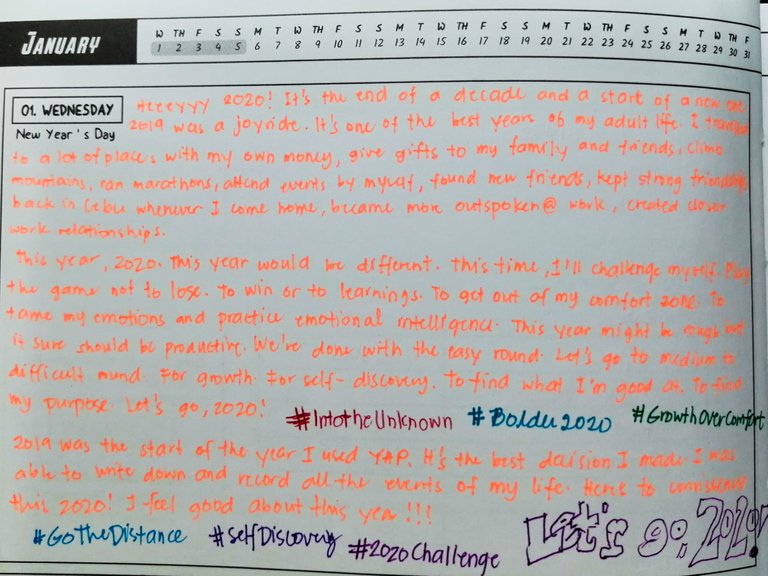 JANUARY
W TH F S S M T W TH F S S M T W TH F S S M T W TH F S S M T W TH F
1 2 3 4 5 6 7 8 9 10 11 12 13 14 15 16 17 18 19 20 21 22 23 24 25 26 27 28 29 30 31
01. WEDNESDAY
New Year's Day
Heeeyyy 2020! It's the end of a decade and a start of a new one.
2019 was a joyride. It's one of the best years of my adult life. I travelled
to a lot of places with my own money, give gifts to my family and friends, climb
mountains, ran marathons, attend events by myself, found new friends, kept strong friendships
back in Cebu whenever I come home, became more outspoken @ work, created closer
work relationships.
This year, 2020. This year would be different. This time, I'll challenge myself. Play
the game not to lose. To win or to learnings. To get out of my comfort zone. To
tame my emotions and practice emotional intelligence. This year might be rough but
it sure should be productive. We're done with the easy round. Let's go to medium to
difficult round. For growth. For self-discovery. To find what I'm good at. To find
my purpose. Let's go, 2020!
#IntotheUnknown #Bolder2020 #GrowthOverComfort
2019 was the start of the year I used YAP. It's the best decision I made. I was
able to write down and record all the events of my life. Here's to consistency
this 2020! I feel good about this year!!!
#GoTheDistance #selfDiscovery #2020Challenge
Let's go, 2020!